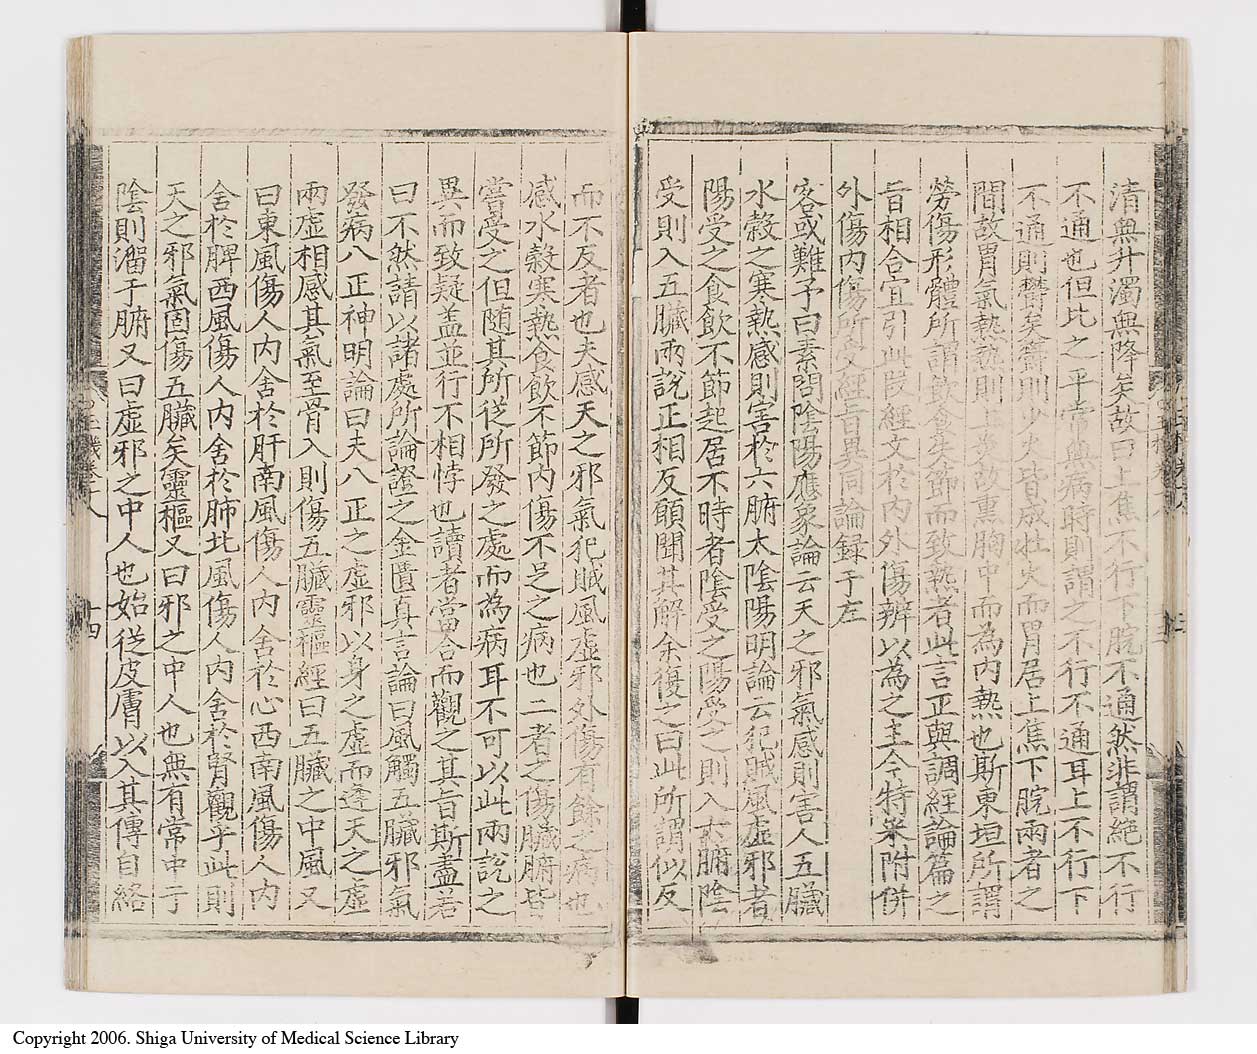 清無升濁無降矣故曰上焦不行下脘不通然非謂絕不行
不通也但比之平常與病時則謂之不行不通耳上不行下
不通則鬱矣鬱則少火皆成壯火而胃居上焦下脘兩者之
間故胃氣熱熱則上炎故熏胸中而為內熱也斯東垣所謂
勞傷形體所謂飲食失節而致熱者此言正與調經論篇之
旨相合宜引此段經文於內外傷辨以為之主今特筆附併
外傷內傷所受經旨異同論録于左
客或難予曰素問陰陽應象論云天之邪氣感則害人五臟
水穀之寒熱感則害於六腑太陰陽明論云犯賊風虛邪者
陽受之食飲不節起居不時者陰受之陽受之則入六腑陰
受則入五臟兩說正相反願聞其解余復之曰此所謂似反
而不反者也夫感天之邪氣犯賊風虛邪外傷有餘之病也
感水穀寒熱食飲不節內傷不足之病也二者之傷臟腑皆
嘗受之但随其所從所發之處而為病耳不可以此兩說之
異而致疑盖並行不相悖也讀者當合而觀之其旨斯盡若
曰不然請以諸處所論證之金匱真言論曰風觸五臟邪氣
發病八正神明論曰夫八正之虛邪以身之虛而逢天之虛
兩虛相感其氣至骨入則傷五臟靈樞經曰五臟之中風又
曰東風傷人內舍於肝南風傷人內舍於心西南風傷人內
舍於脾西風傷人內舍於肺北風傷人內舍於腎觀乎此則
天之邪氣固傷五臟矣靈樞又曰邪之中人也無有常中于
陰則溜于腑又曰虛邪之中人也始從皮膚以入其傳自絡
十四
Copyright 2006. Shiga University of Medical Science Library